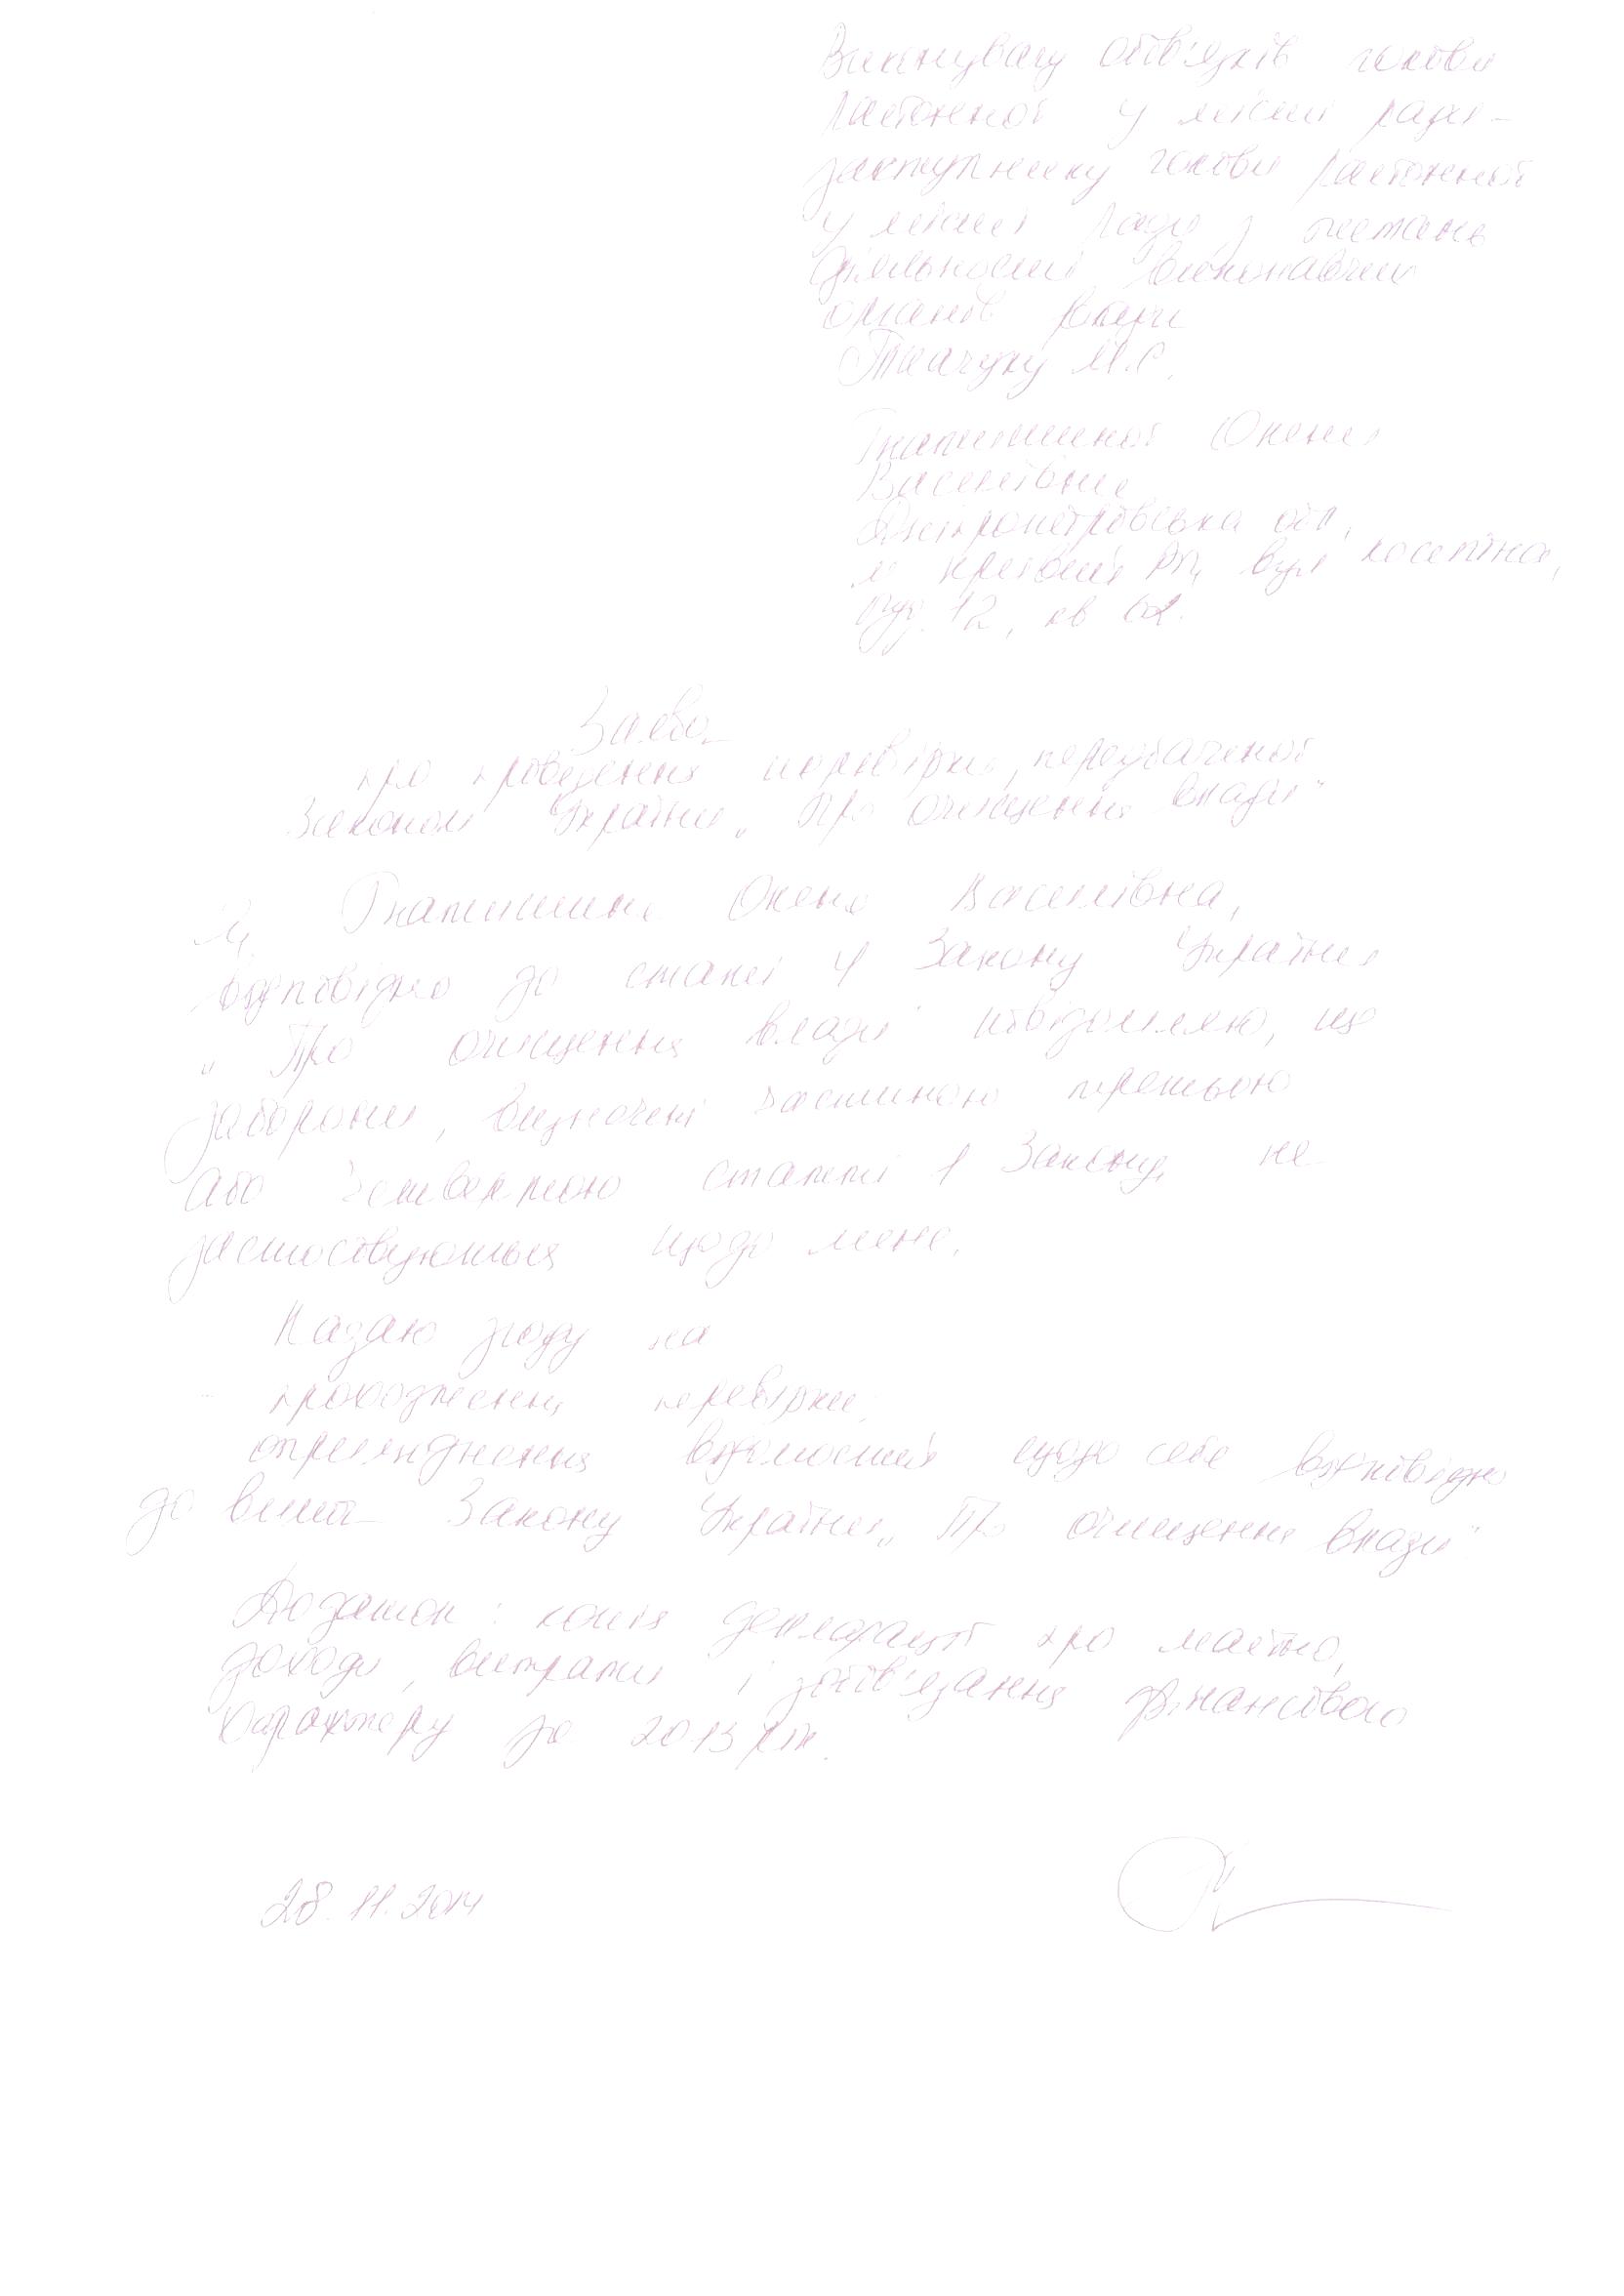 Виконувачу обов'язків голови
районної у місті ради -
заступнику голови районної
у місті ради з питань
діяльності виконавчих
органів влади
Ткачуку М.С.
Гнатишиної Олени
Василівни
Дніпропетровська обл.,
м. Кривий Ріг, вул.
буд. 12, кв
Заява
про проведення перевірки, передбаченої
Законом України „Про очищення влади"
Я, Гнатишина Олена Василівна,
відповідно до статті 4 Закону України
„Про очищення влади" повідомляю, що
заборони, визначені частиною третьою
або четвертою статті 1 Закону, не
застосовуються щодо мене.
Надаю згоду на
проходження перевірки;
оприлюднення відомостей щодо себе відповідно
до вимог Закону України „Про очищення влади"
Додаток: копія декларації про майно,
доходи, витрати і зобов'язання фінансового
характеру за 2013 рік.
28.11.2014